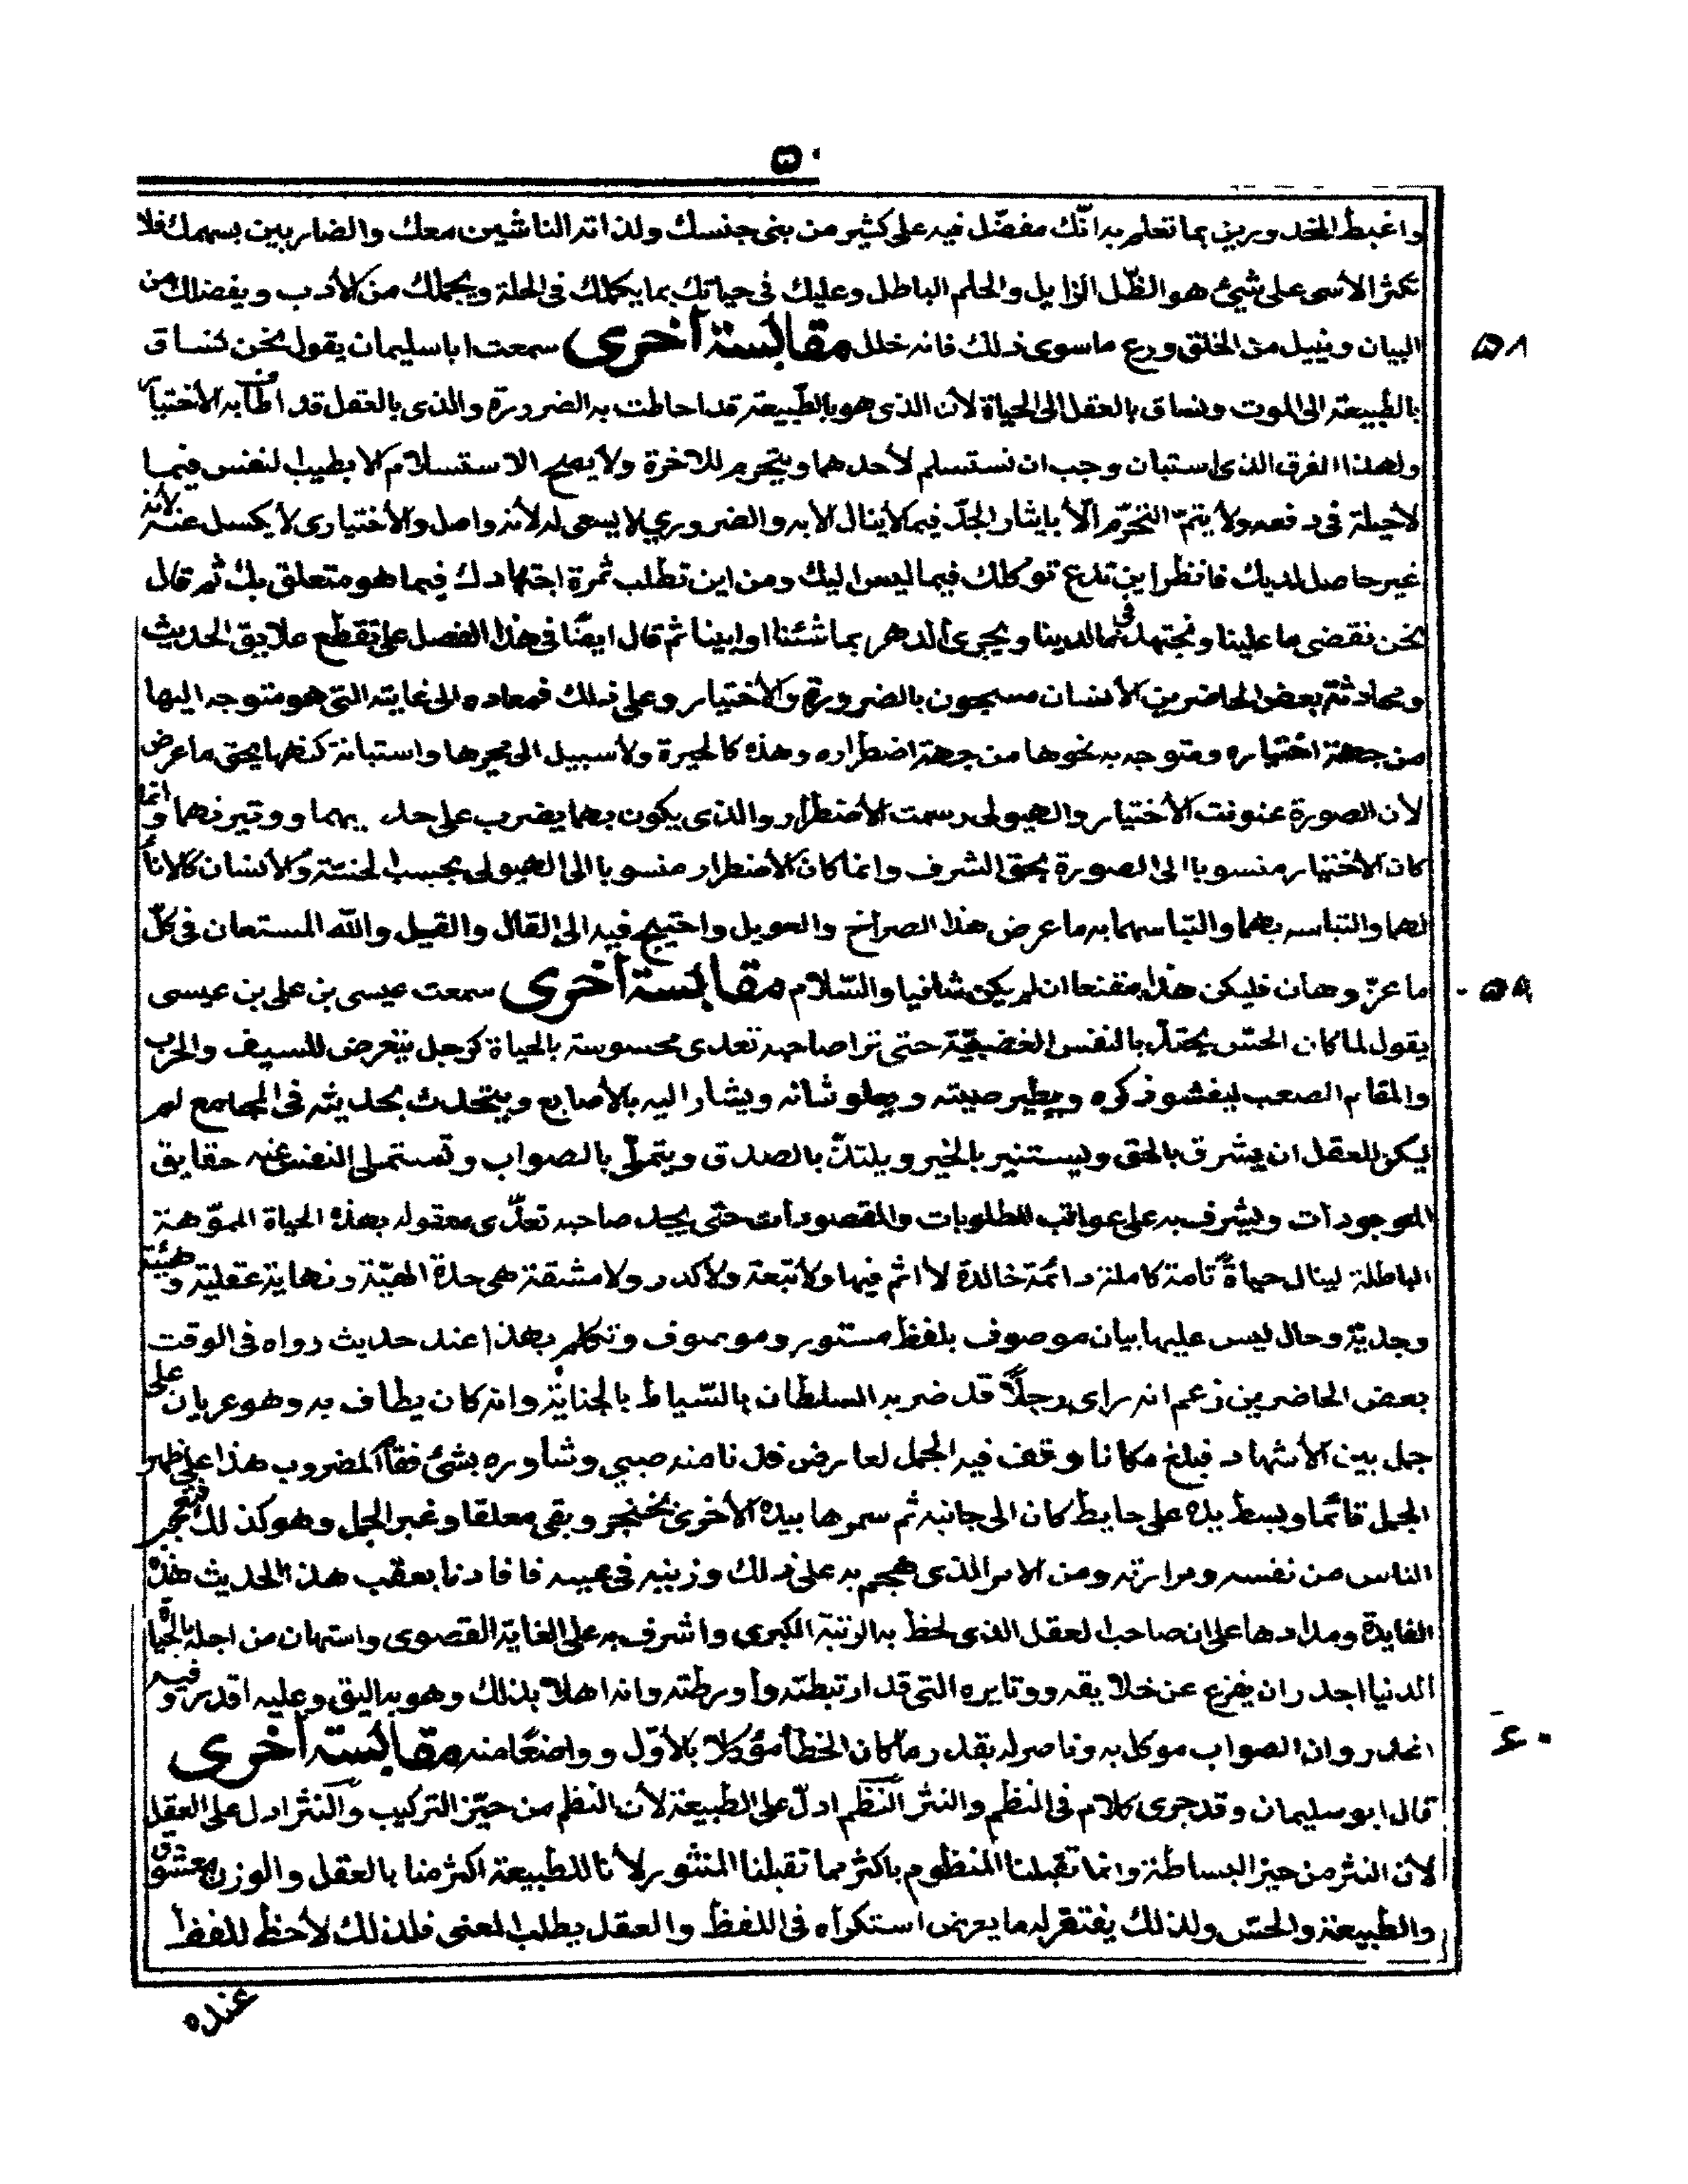 ٥٠
واغبط المخدورين بما تعلم به انّك مفضّل فيه على كثير من بنى جنسك ولذاته الناشين معك والضاربين بسهمك فلا
تكثر الأسى على شيئ هو الظّل الزايل والحلم الباطل وعليك فى حياتك بما يكملك فى الحلة ويجملك من الأدب ويفضلك من
البيان وينيل من الخلق ودع ماسوى ذلك فانه خلل مقابسة أخرى سمعت ابا سليمان يقول نحن نساق
٥٨
بالطّبيعة الى الموت ونساق بالعقل الى الحياة لأن الذى هو بالطّبيعة قد احاطت به الضرورة والذى بالعقل قد اطاف به الأختيار
ولهذا الفرق الذى استبان وجب ان نستسلم لأحدهما ويتحزم للاخرة ولا يصح الاستسلام الا بطيب النفس فيما
لا حيلة فى دفعه ولا يتمّ التحزّم الّا بايثار الجدّ فيما لا ينال الا به والضروري لا يسعى له لأنه واصل والأختيارى لا يكسل عنه لأنه
غير حاصل لديك فانظر اين تدع توكلك فيما ليس اليك ومن اين تطلب ثمرة اجتهادك فيما هو متعلق بك ثم قال
نحن نقضى ما علينا ونجتهد فى ما لدينا ويجرى الدهر بما شئنا او ابينا ثم قال ايضًا فى هذا الفصل على تقطع علايق الحديث
ومحادثة بعض الحاضرين الأنسان مسجون بالضرورة والأختيار وعلى ذلك فمعاده الى غايته التى هو متوجه اليها
من جهة اختياره ومتوجه به نحوها من جهة اضطراره وهذه كالحيرة ولا سبيل الى محوها واستبانة كنهها بحق ما عرض
لأن الصورة عنونت الأختيار والهيولى رسمت الأضطرار والذى يكون بهما يضرب على حد يهما ووتيرفهما وانما
كان الأختيار منسوبا الى الصورة بحق الشرف وانما كان الأضطرار منسوبا الى الهيولى بحسب الخسة والأنسان كالاناء
لهما والتباسه بهما والتباسهما به ما عرض هذا الصراخ والعويل واحتيج فيه الى القال والقيل والله المستعان فى كلّ
ما عزّ وهان فليكن هذا مقنعا ان لم يكن شافيا والسّلام مقابسة أخرى سمعت عيسى بن على بن عيسى
٥٩
يقول لما كان الحسّ يحتدّ بالنفس الغضبيّة حتى ترا صاحبه تعدى محسوسة بالحياة كرجل يتعرض للسيف والحرب
والمقام الصعب ليفشو ذكره ويطير صيته ويعلو شانه ويشار اليه بالأصابع ويتحدث بحديثه فى المجامع لم
يكن للعقل ان يشرق بالحق ويستنير بالخير ويلتذّ بالصدق ويتملّى بالصواب وتستملى النفس عنه حقايق
الموجودات ويشرف به على عواقب المطلوبات والمقصودات حتى يجد صاحبه تعدّى معقوله بهذه الحياة المموّهة
الباطلة لينال حياةً تامة كاملة دائمة خالدة لا اثم فيها ولا تبعة ولا كدر ولا مشقة هى حدة الهيّة ونهاية عقلية وهيئة
وجديّة وحال ليس عليها بيان موصوف بلفظ مستور وموصوف وتكلم بهذا عند حديث رواه فى الوقت
بعض الحاضرين زعم انه راى رجلًا قد ضربه السلطان بالسّياط بالجناية وانه كان يطاف به وهو عريان على
جمل بين الأشهاد فبلغ مكانا وقف فيه الجمل لعارض فدنا منه صبي وشاوره بشئ فقام المضروب هذا على ظهر
الجمل قائما وبسط يده على حايط كان الى جانبه ثم سمرها بيده الأخرى بخنجر وبقى معلقا وغبر الجمل وهو كذلك فتعجب
الناس من نفسه ومرارته ومن الامر الذى هجم به على ذلك وزينه فى عينه فافادنا بعقب هذا الحديث هذه
الفايدة ومدادها على ان صاحب العقل الذى لحظ به الرتبة الكبرى واشرف به على الغاية القصوى واستهان من اجله بالحياة
الدنيا اجدر ان يفزع عن خلايقه ووتايره التى قد ارتبطته واورطته وانه اهلا بذلك وهو به اليق وعليه اقدر وفيه
اعذر وان الصواب موكل به وناصر له بقدر ما كان الخطأ مؤكلا بالأوّل وواضعًا منه مقابسة أخرى
٦٠
قال ابو سليمان وقد جرى كلام فى النظم والنثر النّظم ادلّ على الطبيعة لأن النظم من حيّز التركيب والنثر ادل على العقل
لأن النثر من حيز البساطة وانما تقبلنا المنظوم باكثر مما تقبلنا المنثور لأنا للطبيعة اكثر منا بالعقل والوزن معشوق
والطبيعة والحسّ ولذلك يفتقر له ما يعرض استكراه فى اللفظ والعقل يطلب المعنى فلذلك لا حظ للفظ
عنده